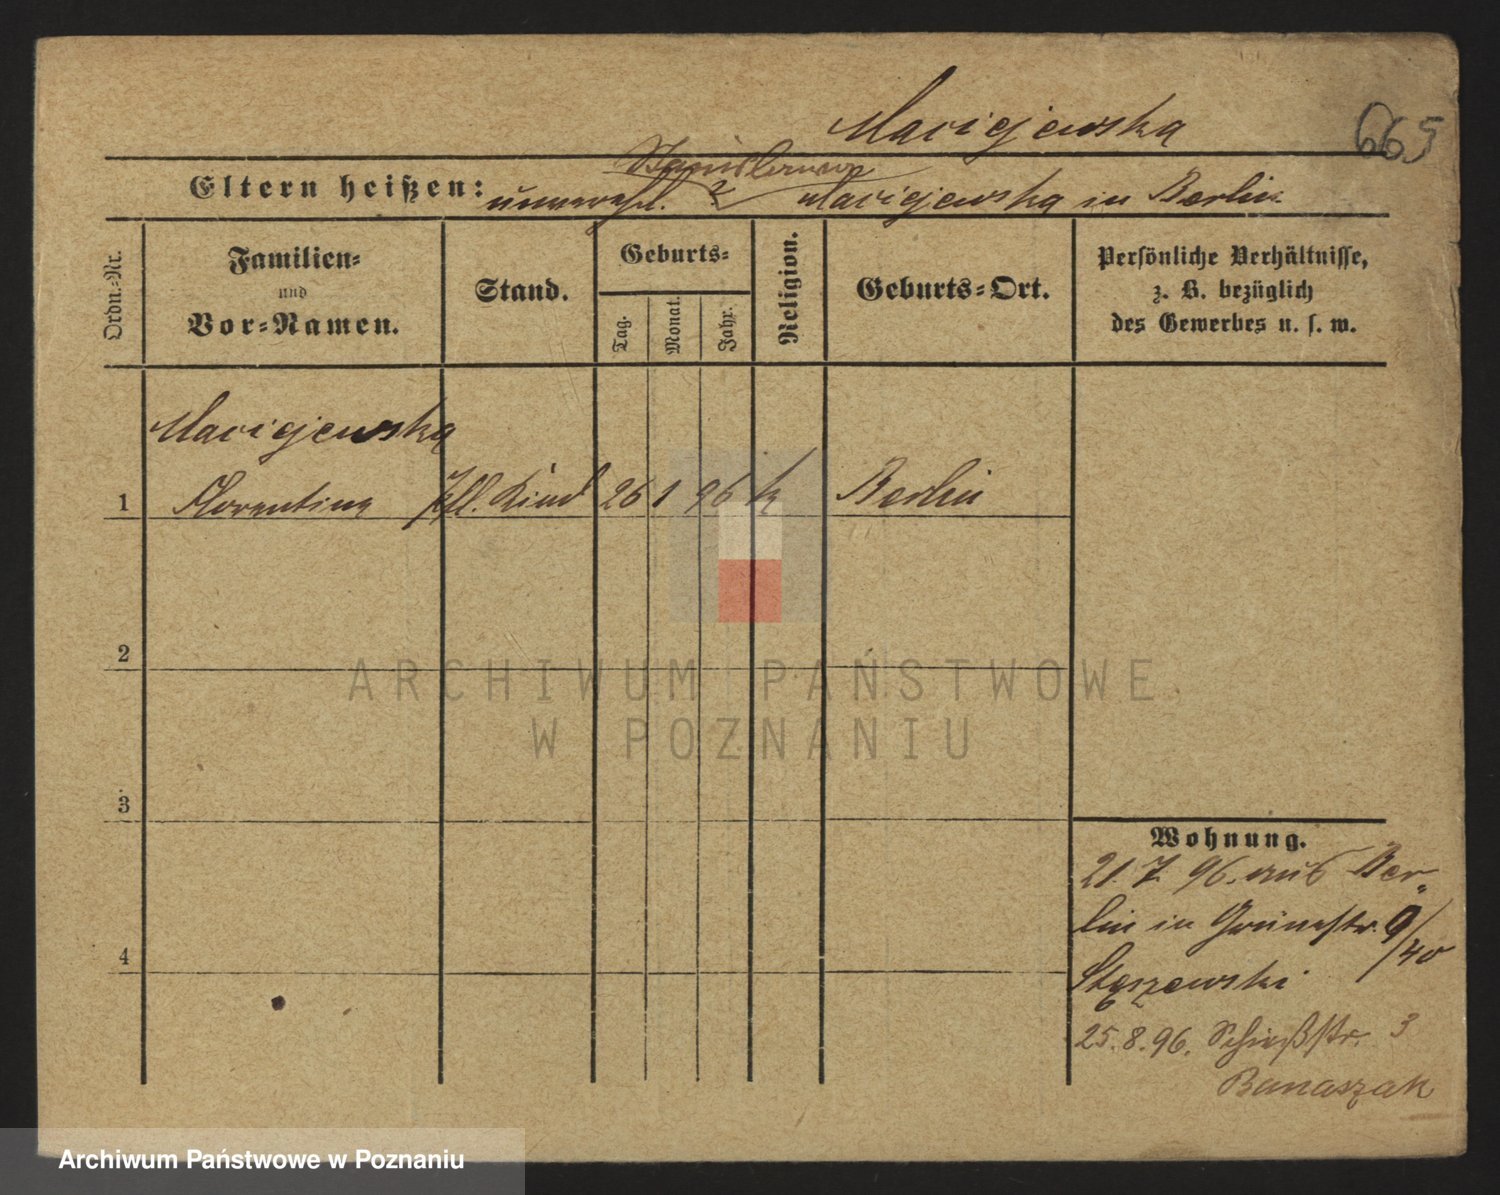 Maciejewska
665
Stanislawa
Eltern heißen: unverehel. Maciejewska in Berlin
Ordn.-Nr.
Familien-
und
Vor-Namen.
Stand.
Geburts-
Tag.
Monat.
Jahr.
Religion.
Geburts-Ort.
Persönliche Verhältnisse,
z. B. bezüglich
des Gewerbes u. s. w.
Maciejewska
1 Florentine Pfl. Kind 26 1 96 k Berlin
2
3
4
Wohnung.
21. 7. 96. aus Ber-
lin in Grünestr. 9/40
Stęszewski
25. 8. 96. Schießstr. 3
Banaszak
ARCHIWUM PAŃSTWOWE
W POZNANIU
Archiwum Państwowe w Poznaniu